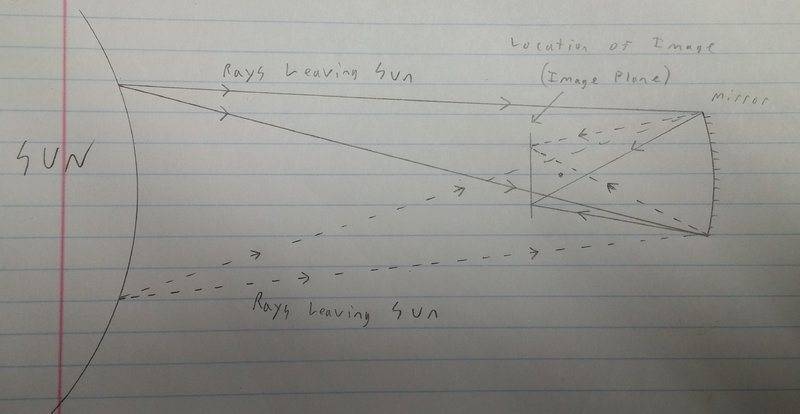 Location of Image
(Image Plane)
Rays Leaving Sun
Mirror
SUN
Rays Leaving Sun